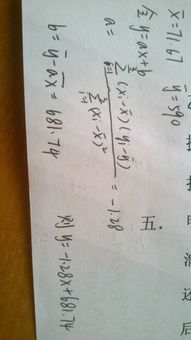 x̄=71.67 ȳ=590
令 y=ax+b
a = \frac{\sum_{i=1}^{3}(x_i-x̄)(y_i-ȳ)}{\sum_{i=1}^{3}(x_i-x̄)^2} = -1.28
b=ȳ-ax̄ = 681.74
则 y=-1.28x+681.74
五.
还
后